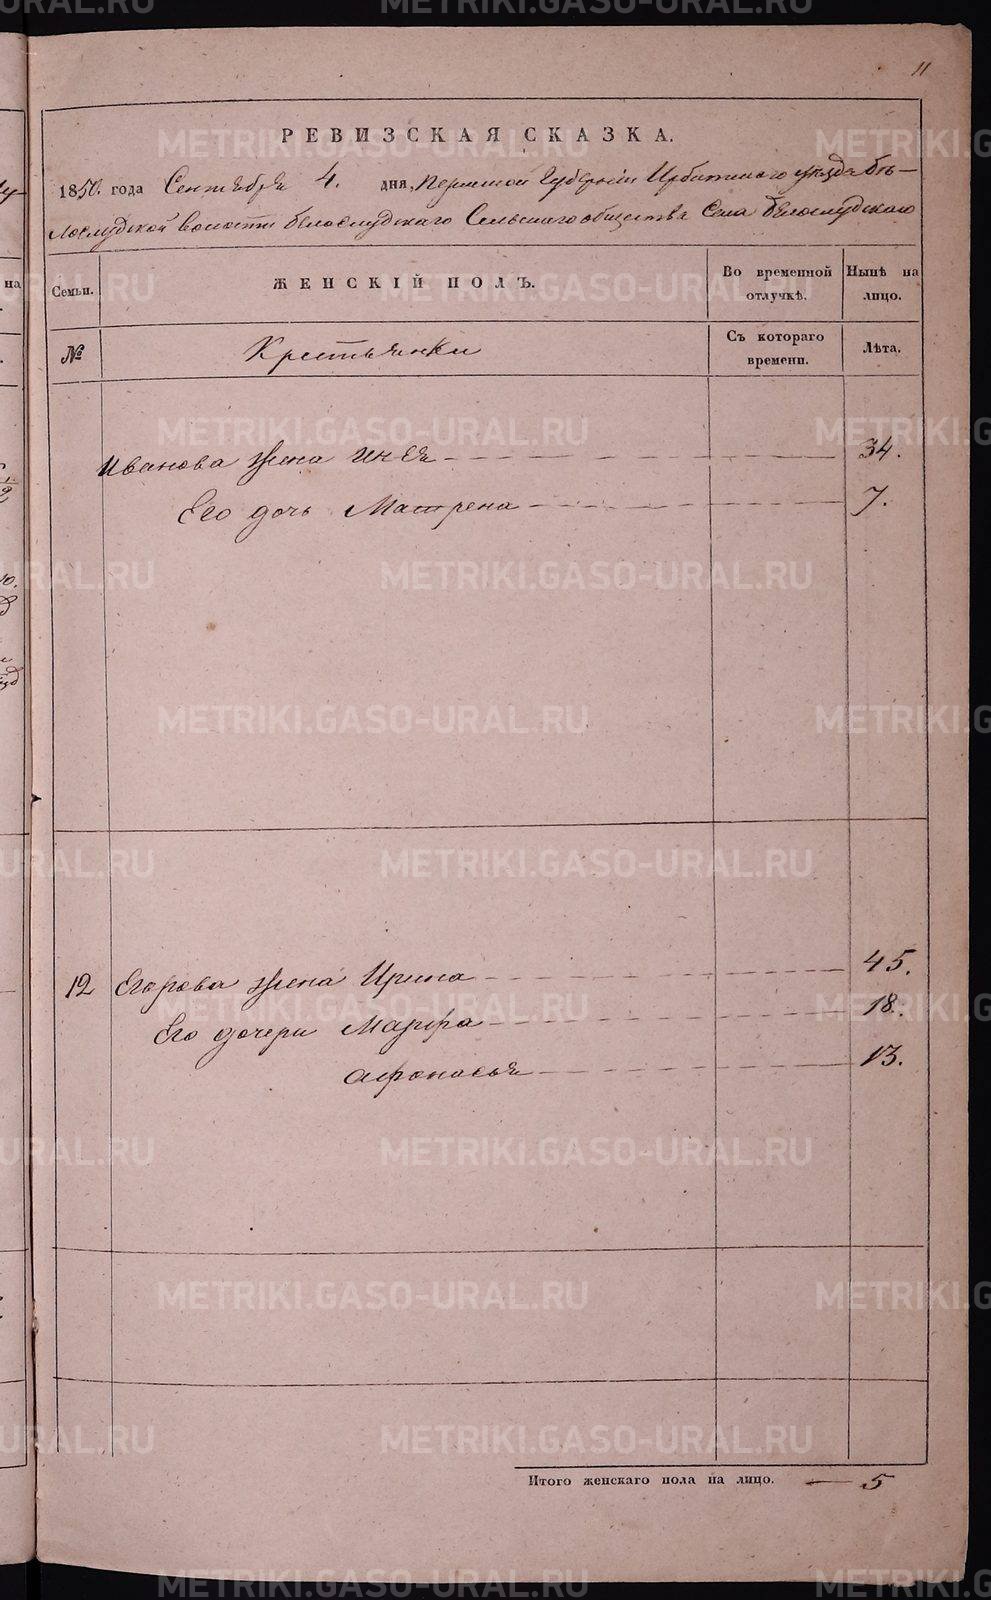 11
РЕВИЗСКАЯ СКАЗКА.
1850. года Сентября 4. дня, Пермской Губернии Ирбитскаго уѣзда Бѣ-
лослудской волости Белослудскаго Сельскаго общества Села Белослудскаго
Семьи. ЖЕНСКІЙ ПОЛЪ. Во временной отлучкѣ. Нынѣ на лицо.
№ Крестьянки Съ котораго времени. Лѣта.
Иванова жена 34.
Его дочь Матрена 7.
12 Егорова жена Ирина 45.
Его дочери Марфа 18.
Афонасья 13.
Итого женскаго пола на лицо. — 5
METRIKI.GASO-URAL.RU